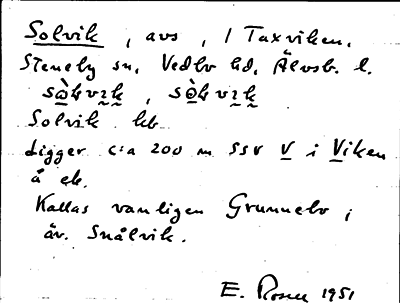 Solvik, avs, / Taxviken.
Steneby sn, Vedbo hd, Älvsb. l.
Solvik kb
Ligger c:a 200 m SSV V i Viken
å ek.
Kallas vanligen Grunnebo ;
äv. Snålvik.
E. Rosen 1951